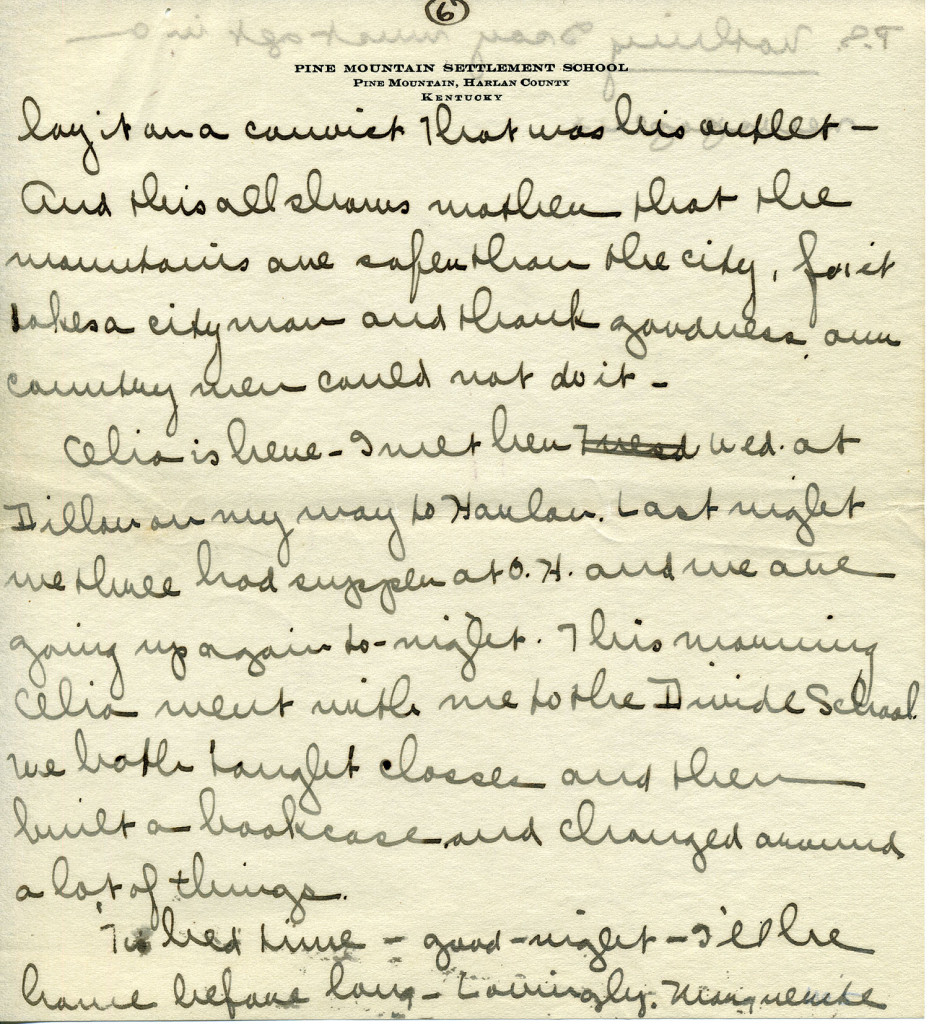 6
PINE MOUNTAIN SETTLEMENT SCHOOL
PINE MOUNTAIN, HARLAN COUNTY
KENTUCKY
lay it on a convict that was his outlet –
And this all shows mother that the
mountains are safer than the city, for it
takes a city man and thank goodness our
country men could not do it –
Celia is here – I met her Tuesd Wed. at
Dillon on my way to Harlan. Last night
we three had supper at O.H. and we are
going up again to-night. This morning
Celia went with me to the Divide School.
We both taught classes and then
built a bookcase and changed around
a lot of things.
'Tis bed time – good-night – I'll be
home before long – Lovingly. Marguerite